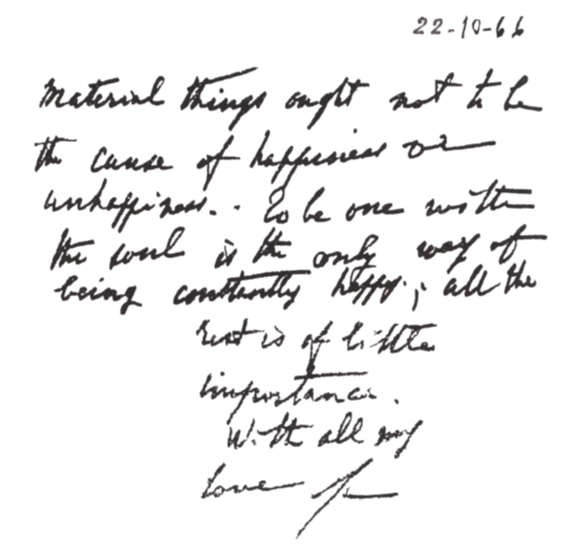 22-10-66
Material things ought not to be
the cause of happiness or
unhappiness.. To be one with
the soul is the only way of
being constantly happy; all the
rest is of little
importance.
With all my
love